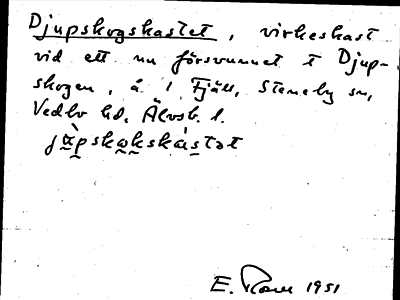 Djupskogskastet, virkeskast
vid ett nu försvunnet t Djup-
skogen, å 1 Fjäll, Steneby sn,
Vedbo hd. Älvsb. l.
E. 1951